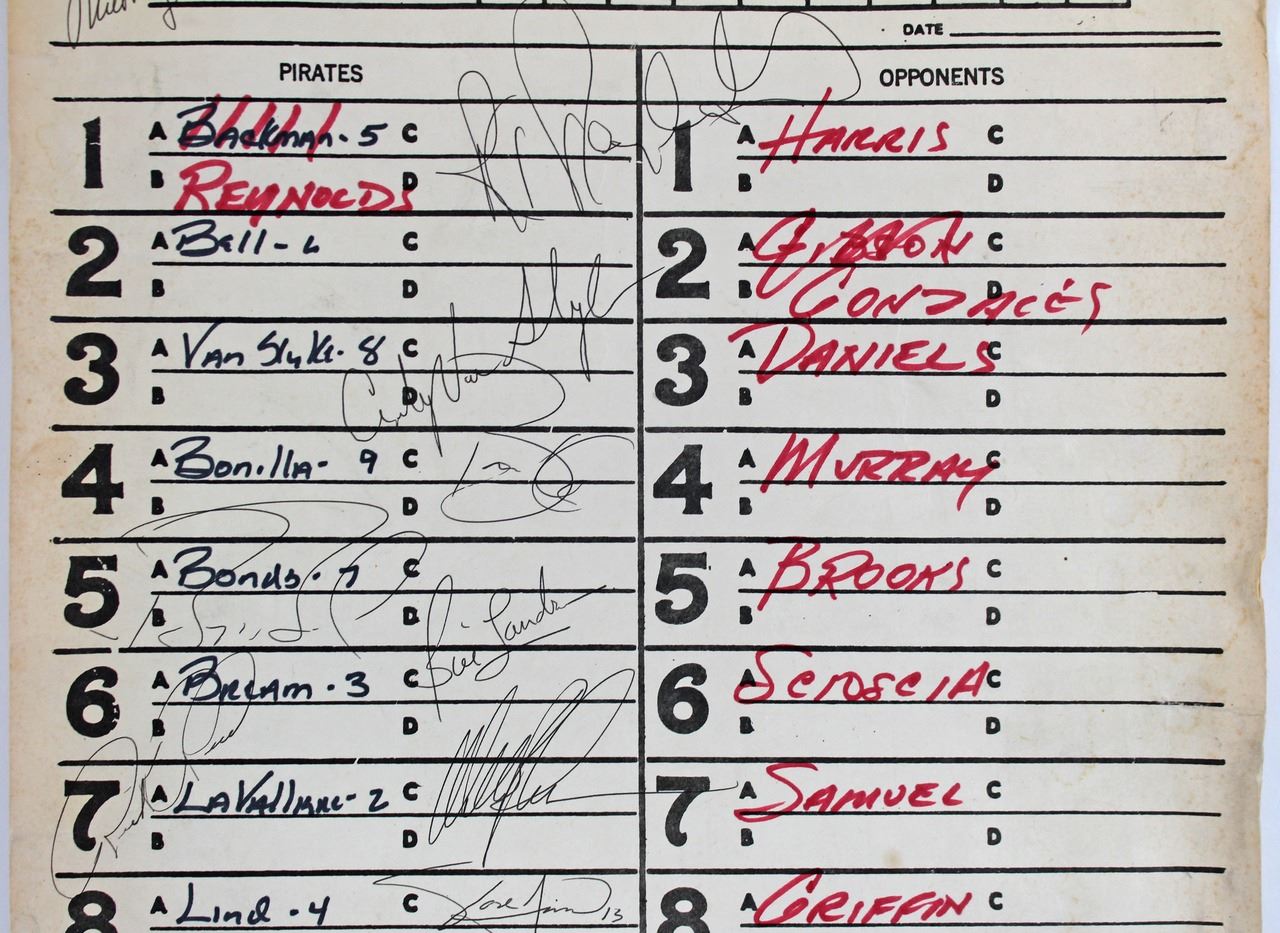 DATE
PIRATES
OPPONENTS
1 A Backman - 5 C
B REYNOLDS D
1 A HARRIS C
B D
2 A Bell - 6 C
B D
2 A GIBSON C
B GONZALES D
3 A Van Slyke - 8 C
B D
Andy Van Slyke
3 A DANIELS C
B D
4 A Bonilla - 9 C
B D
4 A MURRAY C
B D
5 A Bonds - 7 C
B D
Bill Landrum
5 A BROOKS C
B D
6 A Bream - 3 C
B D
6 A SCIOSCIA C
B D
7 A LaValliere - 2 C
B D
7 A SAMUEL C
B D
8 A Lind - 4 C
Jose Lind 13
8 A GRIFFIN C